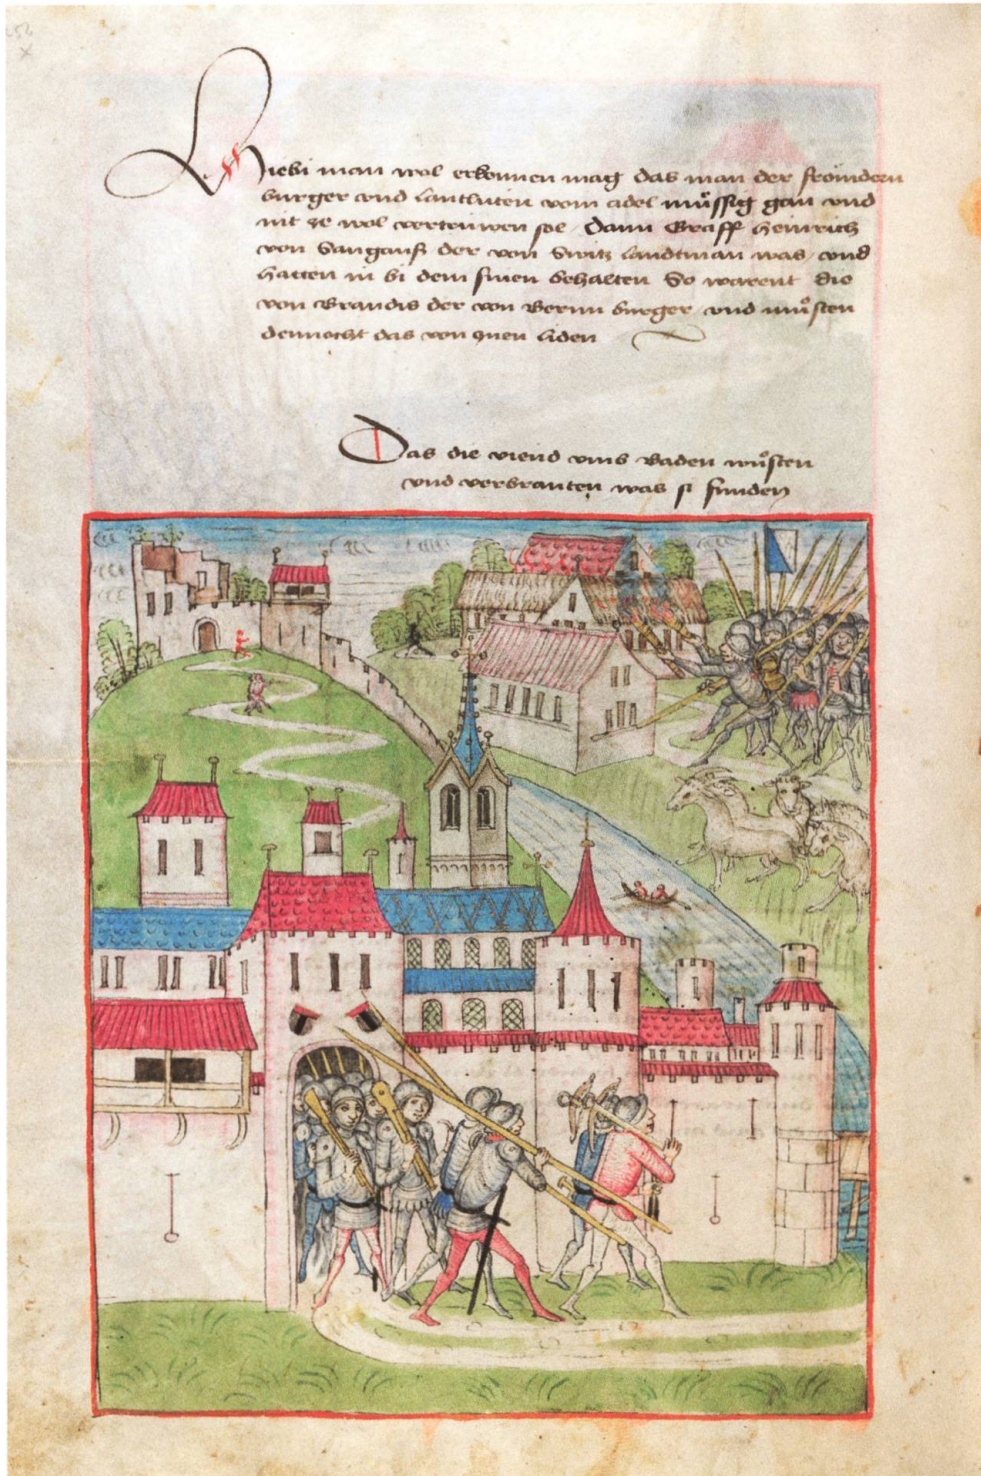 Hiebi man wol erkennen mag das man der frömden
burger vnd lantlüten vom adel mu̍ssig gan vnd
nit ze wol vertruwen sol / Dann Graff heinrich
von Sanganß der von Switz landtman was / vnd
hatten in bi dem sinen behalten So warent die
von Brandis der von Bernn burger vnd mu̍sten
dennocht das von Inen liden
Das die viend vmb Baden wu̍sten
vnd verbranten was si funden